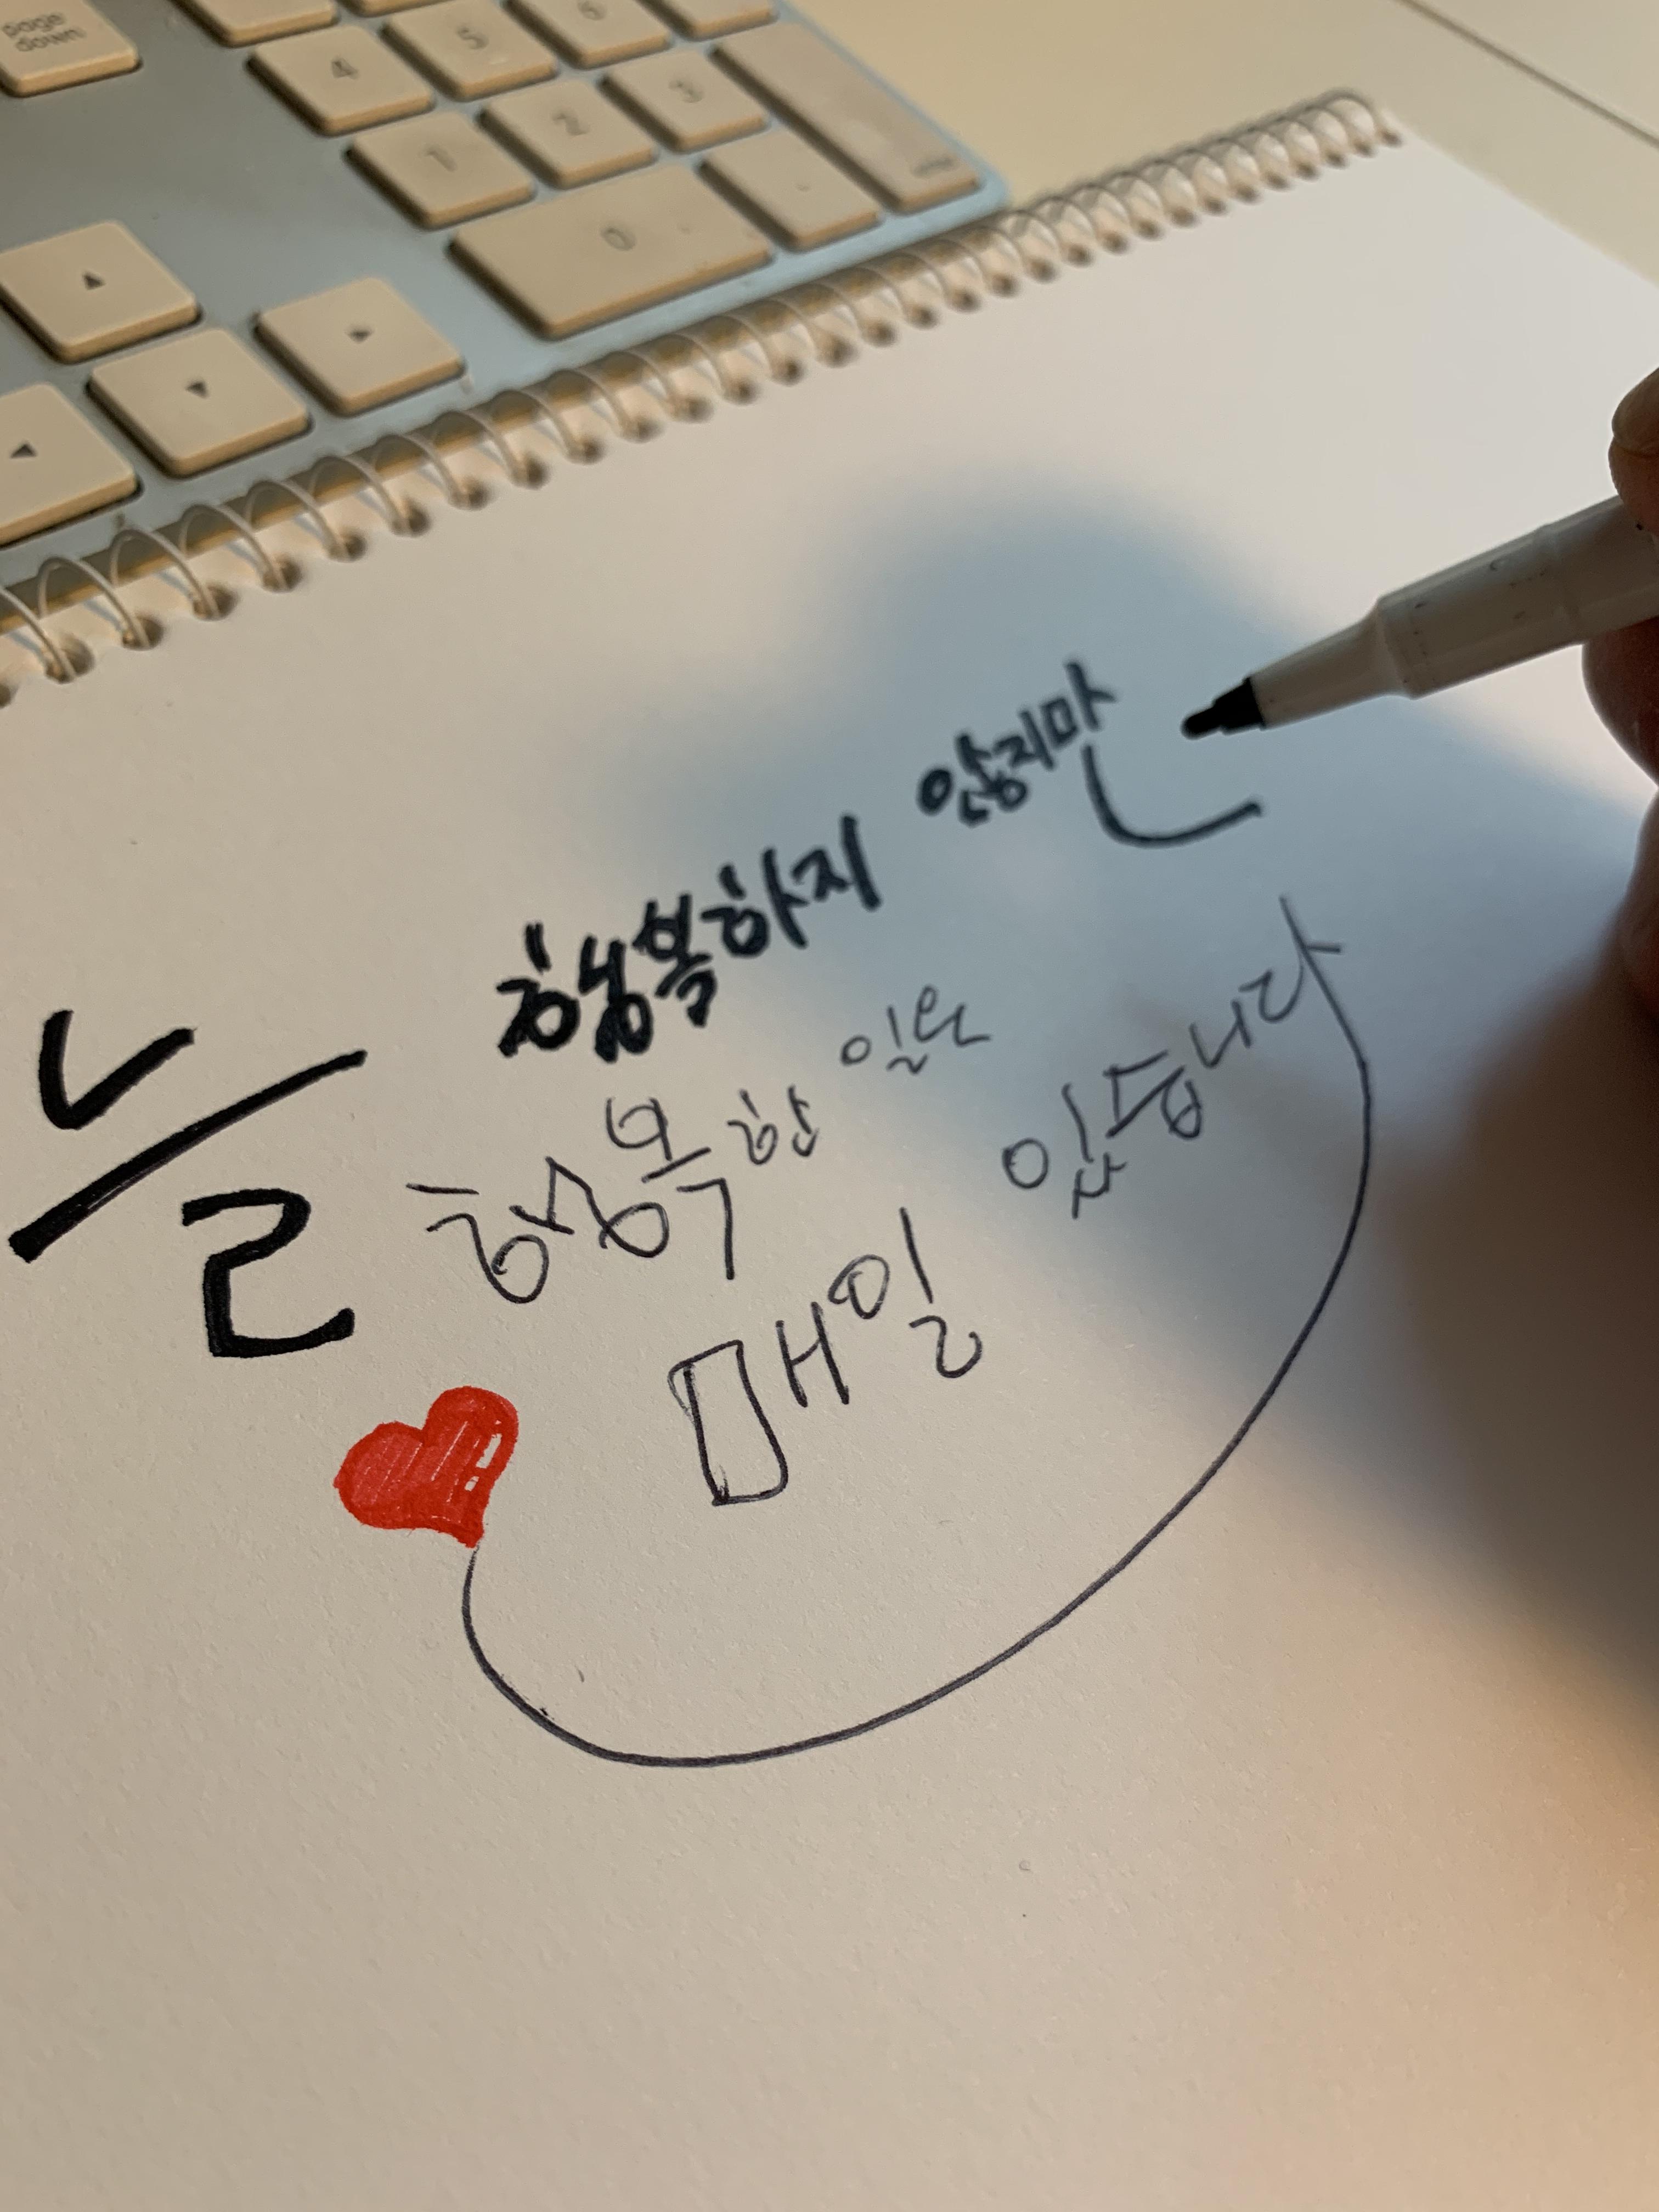 page down
4 5 6
1 2 3
0 .
enter
늘 행복하지 않지만
행복한 일은
매일 있습니다